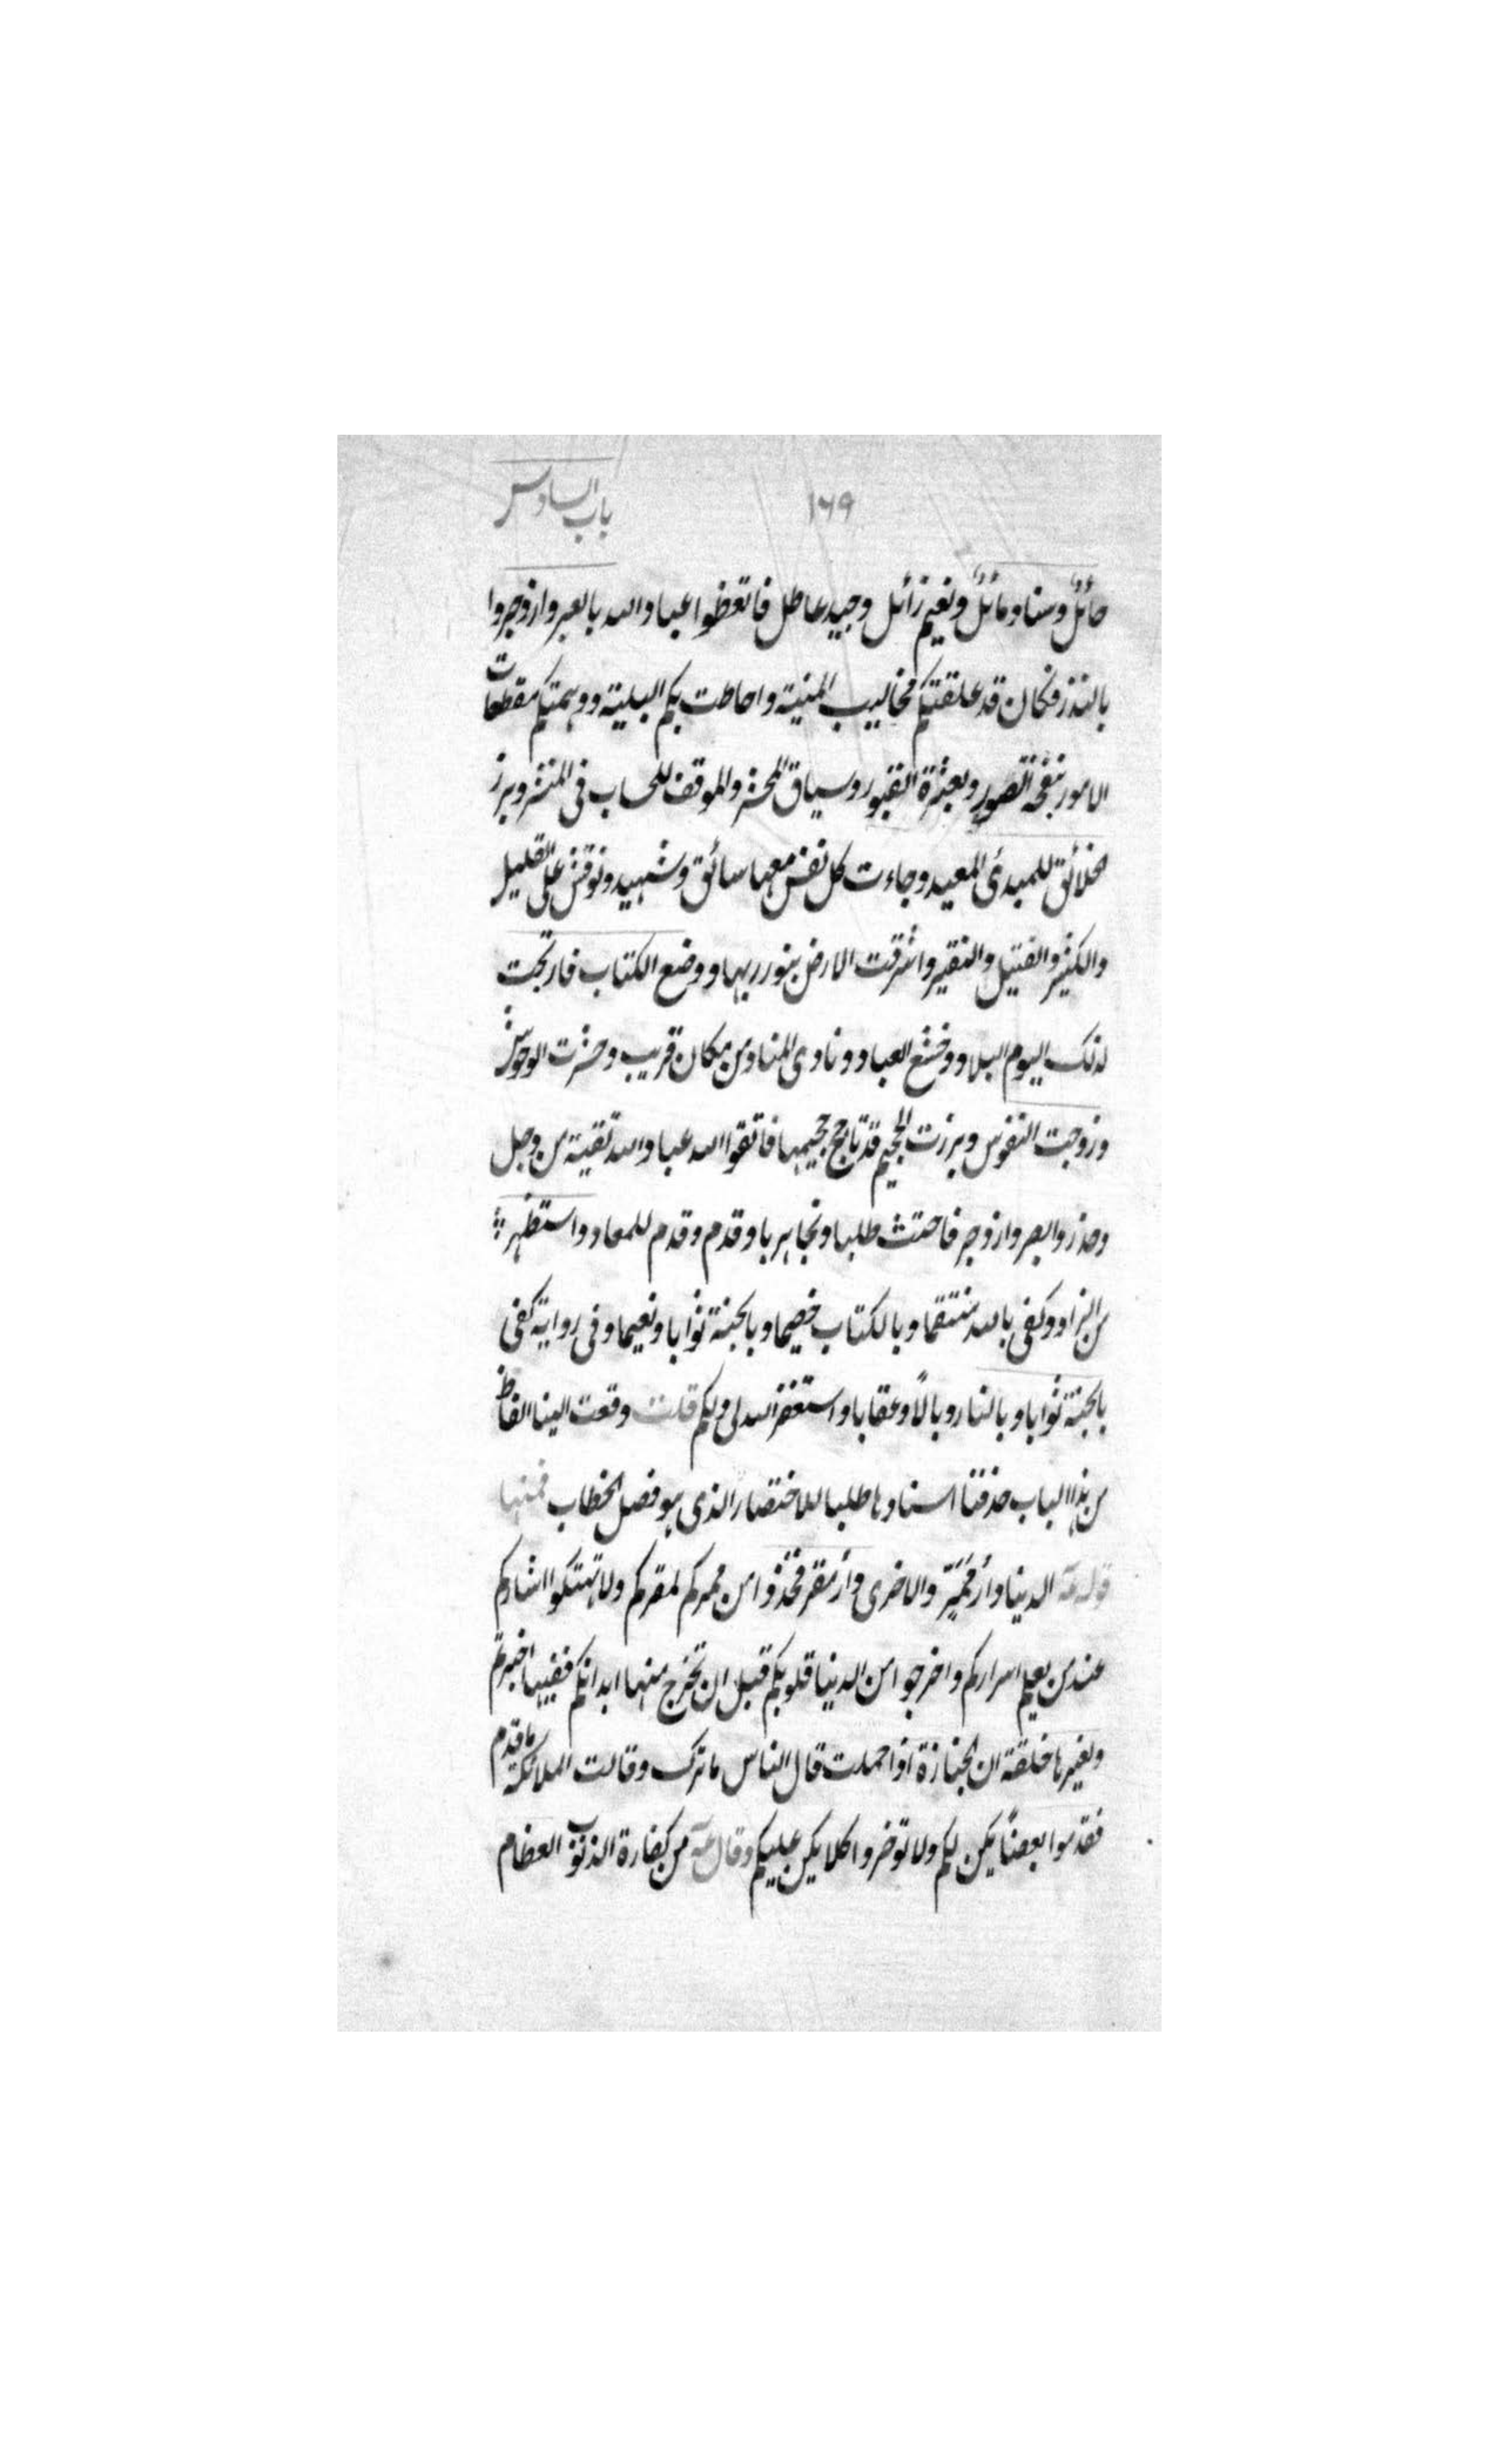 باب السادس
١٦٩
حائل وسنا ومائل ونعيم زائل وجيد عاطل فاتعظوا عباد الله بالعبر وازدجروا
بالنذر فكان قد علقتكم مخاليب المنية واحاطت بكم البلية ودهمتكم مقطعات
الامور بنفخة الصور وبعثرة القبور وسياق المحشر والموقف للحساب فى المنشر وبرز
الخلائق للمبدئ المعيد وجاءت كل نفس معها سائق وشهيد ونوقش على القليل
والكثير والفتيل والنقير واشرقت الارض بنور ربها ووضع الكتاب فارتجت
لذلك اليوم البلاد وخشع العباد ونادى المناد من مكان قريب وحشرت الوحوش
وزوجت النفوس وبرزت الجحيم قد تاجج جحيمها فاتقوا الله عباد الله تقية من وجل
وحذر وابصر وازدجر فاحتث طلبا ونجا هربا وقدم وقدم للمعاد واستظهر
من الزاد وكفى بالله منتقما وبالكتاب خصيما وبالجنة ثوابا ونعيما وفى رواية كفى
بالجنة ثوابا وبالنار وبالًا وعقابا واستغفر الله لى ولكم قلت وقعت الينا الفاظ
من هذا الباب حذفنا اسنادها طلبا للاختصار الذى هو فصل الخطاب فمنها
قوله عـ الدينا دار ممر والاخرى دار مقر فخذوا من ممركم لمقركم ولا تهتكوا اشاركم
عند من يعلم اسراركم واخرجوا من الدينا قلوبكم قبل ان تخرج منها ابدانكم ففيها اختبرتم
ولغيرها خلقة ان الجنازة اذا حملت قال الناس ما ترك وقالت الملائكة ما قدم
فقدموا بعضًا يكن لكم ولا توخروا كلا يكن عليكم وقال عـ من كفارة الذنوب العظام